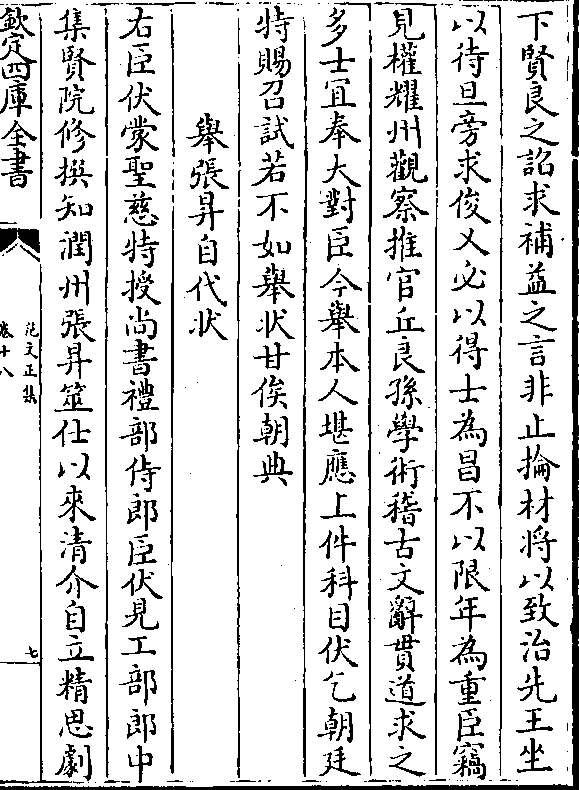 下賢良之詔求補益之言非止掄材將以致治先王坐
以待旦旁求俊乂必以得士為昌不以限年為重臣竊
見權耀州觀察推官丘良孫學術稽古文辭貫道求之
多士宜奉大對臣今舉本人堪應上件科目伏乞朝廷
特賜召試若不如舉狀甘俟朝典
舉張昇自代状
右臣伏蒙聖慈特授尚書禮部侍郎臣伏見工部郎中
集賢院修撰知潤州張昇筮仕以來清介自立精思劇
欽定四庫全書
范文正集
卷十八
七